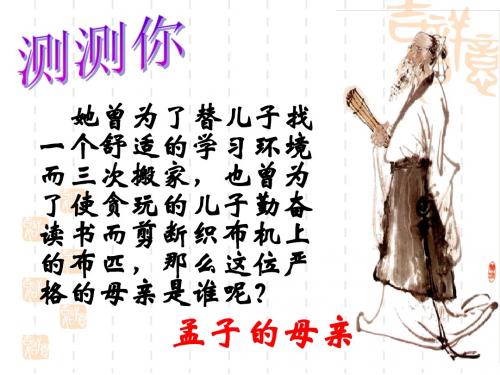 测测你
她曾为了替儿子找
一个舒适的学习环境
而三次搬家，也曾为
了使贪玩的儿子勤奋
读书而剪断织布机上
的布匹，那么这位严
格的母亲是谁呢？
孟子的母亲